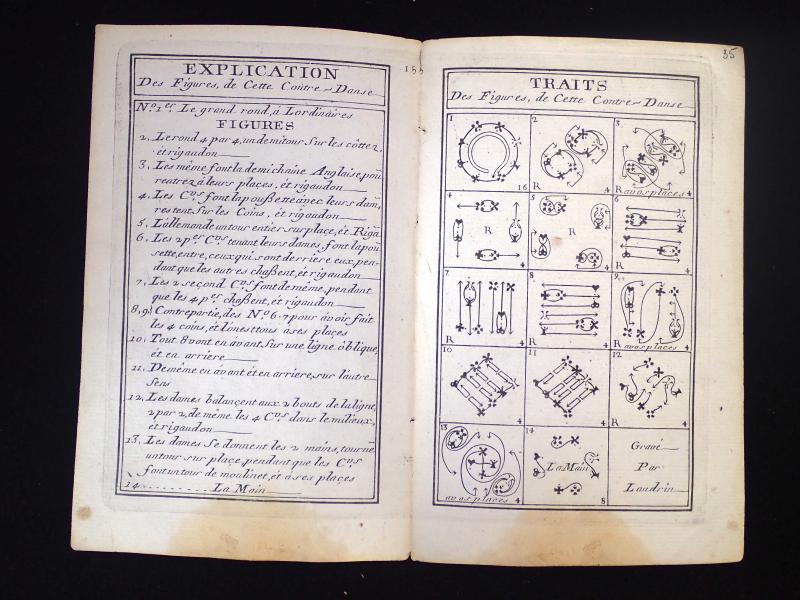 EXPLICATION
Des Figures, de Cette Contre-Danse
N.º 1.er Le grand rond, à Lordinaires
FIGURES
2, Le rond 4 par 4, un demi tour Sur les côttez,
èt rigaudon
3, Les même font la demi chaîne Anglaise, pou
rentrez à leurs plaçes, èt rigaudon
4, Les C.ns font la poußette avec leurs dam,
restent Sur les Coins, èt rigaudon
5, L'allemande un tour entier sur plaçe, èt Riga
6, Les 2 p.er C.ns tenant leurs dames, font la pou
sette, entre, ceux qui sont derriere eux, pen-
dant que les autres chaßent, èt rigaudon
7, Les 2 second C.ns font de même, pendant
que les 4 p.er chaßent, èt rigaudon
8, 9, Contrepartie, des N.º 6-7 pour àvoir fait
les 4 coins, èt Lines tous à ses plaçes
10, Tout 8 vont en àvant Sur une ligne òblique,
èt en arriere
11, De même en àvant èt en arriere, sur l'autre
Sens
12, Les dames balançent aux 2 bouts de la ligne,
2 par 2, de même les 4 C.ns dans le milieux,
èt rigaudon
13, Les dames Se donnent les 2 mains, tourne
un tour sur plaçe, pendant que les C.ns
font un tour de moulinet, èt à ses plaçes
14 La Main
155
35
TRAITS
Des Figures, de Cette Contre-Danse
1 2 3
16 R 4 R avos plaçes 4
4 5 6
R R R 4
7 8 9
R 4 R 4 R avos plaçes 4
10 11 12
4 4 R 4
13 14
La Main
avos plaçes 4 8
Gravé
Par
Landrin